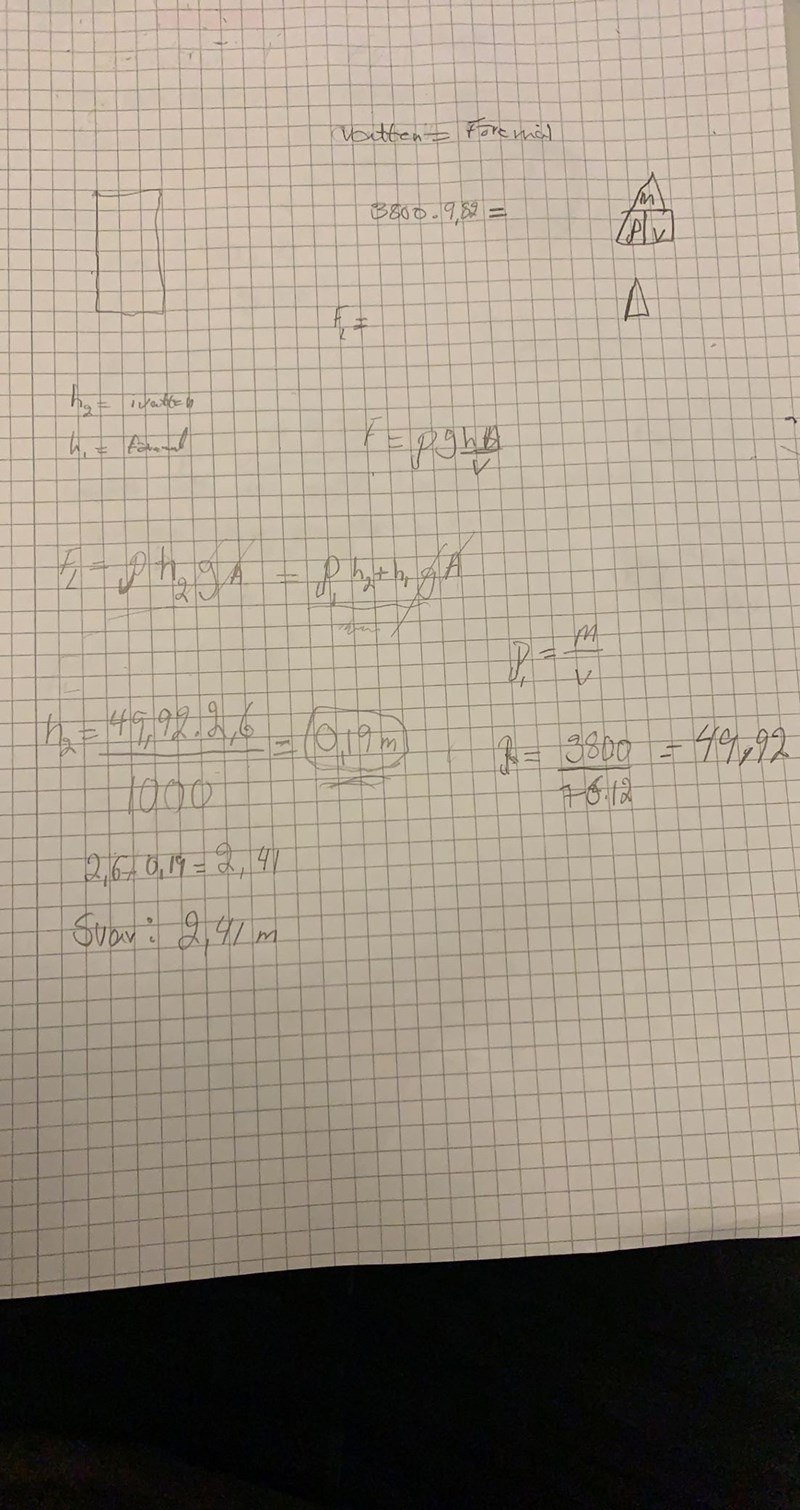 Vatten = Föremål
3800 · 9,82 =
m
ρ V
F_L =
h₂ = i vatten
h₁ =
F = ρghA
V
F_L = ρ h₂ g A = ρ₁ h₂+h₁ g A
ρ₁ = m/V
h₂ = 49,92 · 2,6 / 1000 = 0,19 m
= 3800 / 76.12 = 49,92
2,6 - 0,19 = 2,41
Svar: 2,41 m